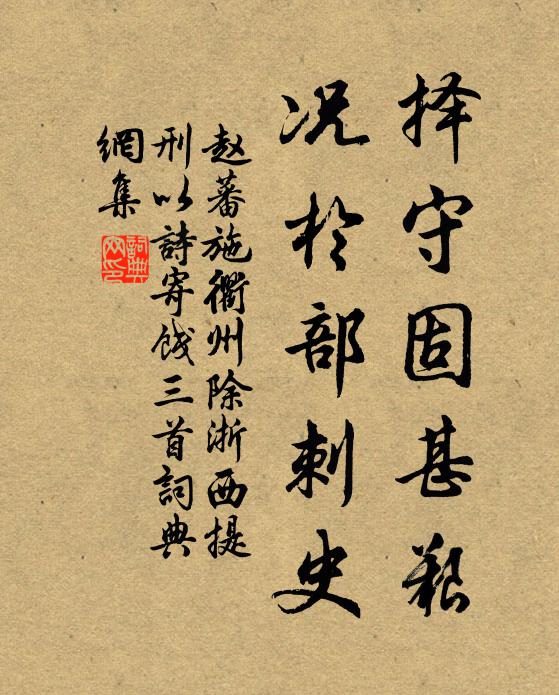 择守固甚艰
况於部刺史
赵蕃施衢州除浙西提
刑以詩寄餞三首詞典
網集
詞典网印